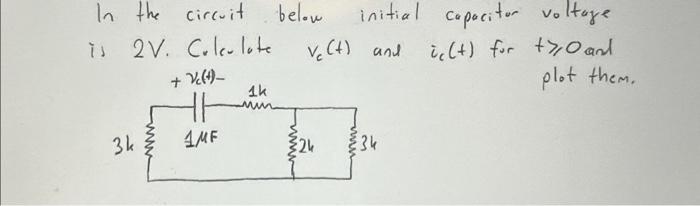 In the circuit below initial capacitor voltage
is 2V. Calculate vc(t) and ic(t) for t⩾0 and
plot them.
+ vc(t) -
1k
3k
1MF
2k
3k